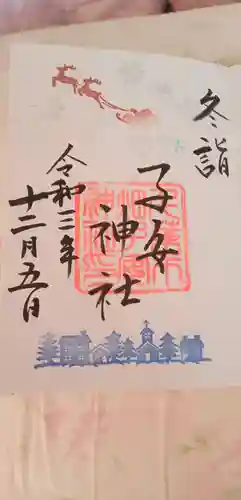 冬詣
子安
神社
令和三年
十二月五日